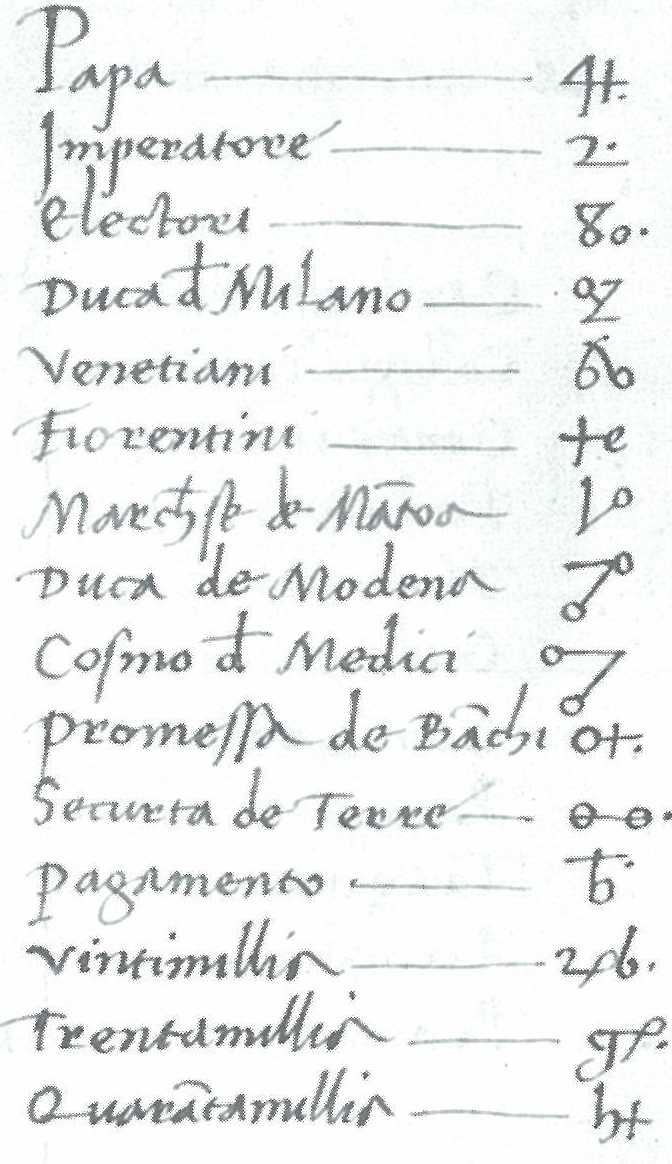 Papa 4t.
Imperatore 2.
Electori 80.
Duca d Milano
Venetiani
Fiorentini +e
March̄se de Mātoa
Duca de Modena
Cosmo d Medici
Promessa de Bāchi o+.
Securta de Terre
Pagamento b.
Vintimillia
Trentamillia
Quarātamillia h+